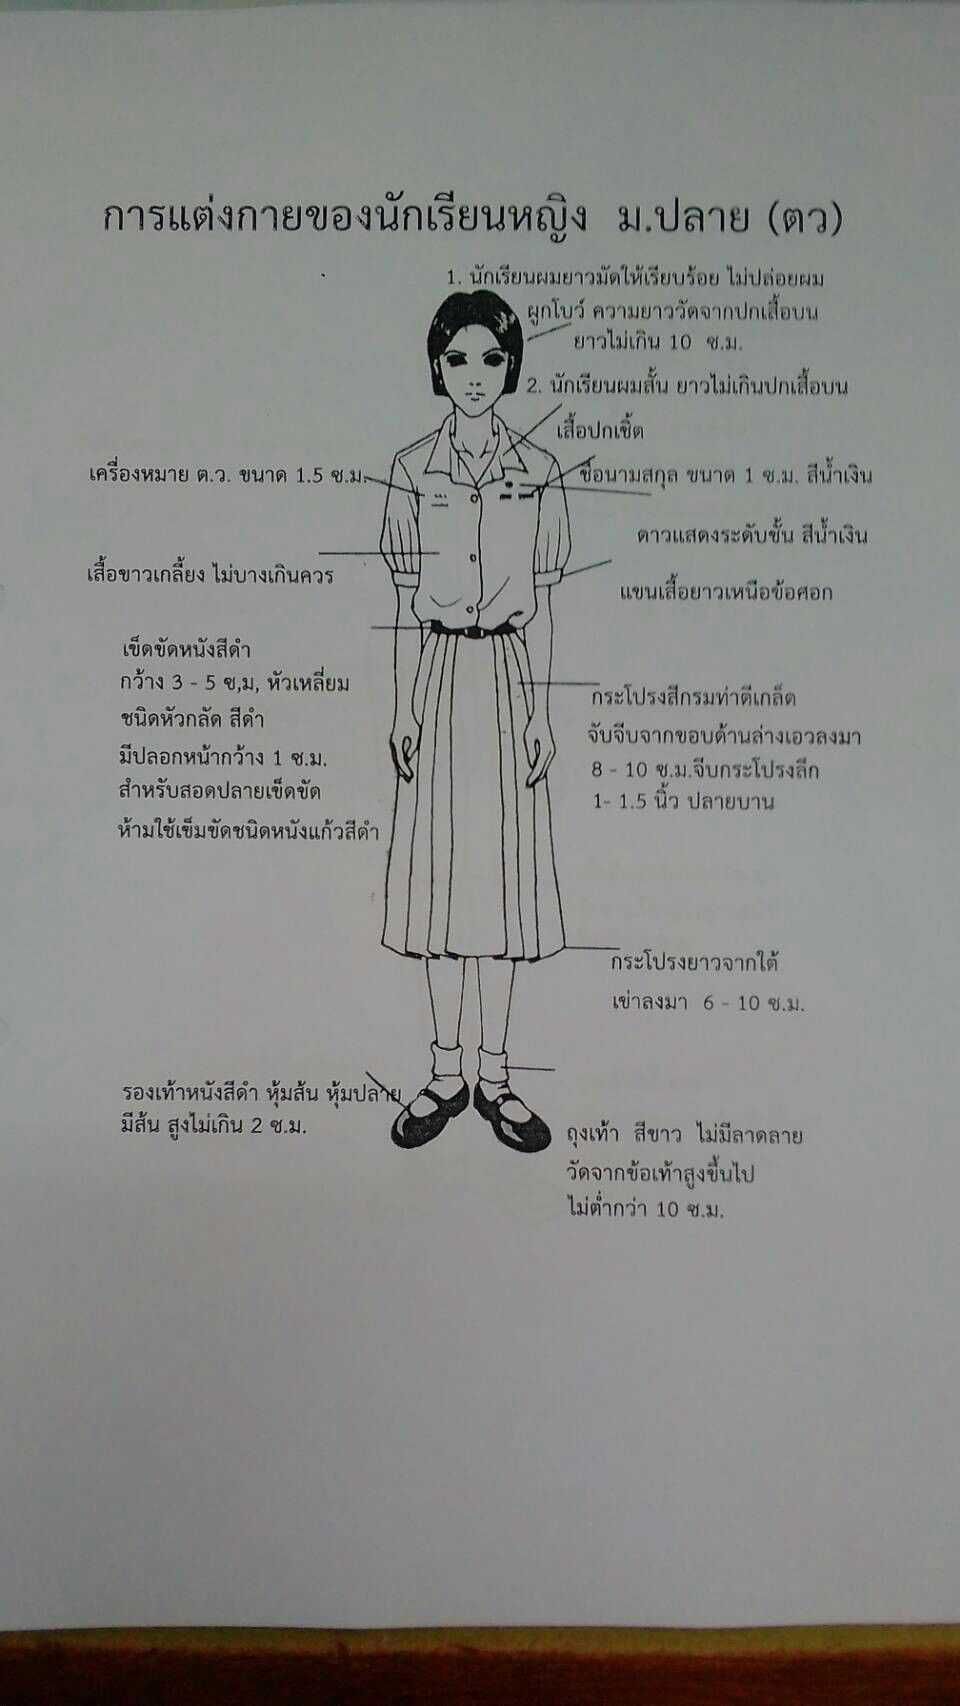 การแต่งกายของนักเรียนหญิง ม.ปลาย (ตว)
1. นักเรียนผมยาวมัดให้เรียบร้อย ไม่ปล่อยผม
ผูกโบว์ ความยาววัดจากปกเสื้อบน
ยาวไม่เกิน 10 ซ.ม.
2. นักเรียนผมสั้น ยาวไม่เกินปกเสื้อบน
เสื้อปกเชิ้ต
เครื่องหมาย ต.ว. ขนาด 1.5 ซ.ม.
ชื่อนามสกุล ขนาด 1 ซ.ม. สีน้ำเงิน
ดาวแสดงระดับชั้น สีน้ำเงิน
เสื้อขาวเกลี้ยง ไม่บางเกินควร
แขนเสื้อยาวเหนือข้อศอก
เข็ดขัดหนังสีดำ
กว้าง 3 - 5 ซ,ม, หัวเหลี่ยม
ชนิดหัวกลัด สีดำ
มีปลอกหน้ากว้าง 1 ซ.ม.
สำหรับสอดปลายเข็ดขัด
ห้ามใช้เข็มขัดชนิดหนังแก้วสีดำ
กระโปรงสีกรมท่าตีเกล็ด
จับจีบจากขอบด้านล่างเอวลงมา
8 - 10 ซ.ม.จีบกระโปรงลึก
1- 1.5 นิ้ว ปลายบาน
กระโปรงยาวจากใต้
เข่าลงมา 6 - 10 ซ.ม.
รองเท้าหนังสีดำ หุ้มส้น หุ้มปลาย
มีส้น สูงไม่เกิน 2 ซ.ม.
ถุงเท้า สีขาว ไม่มีลาดลาย
วัดจากข้อเท้าสูงขึ้นไป
ไม่ต่ำกว่า 10 ซ.ม.